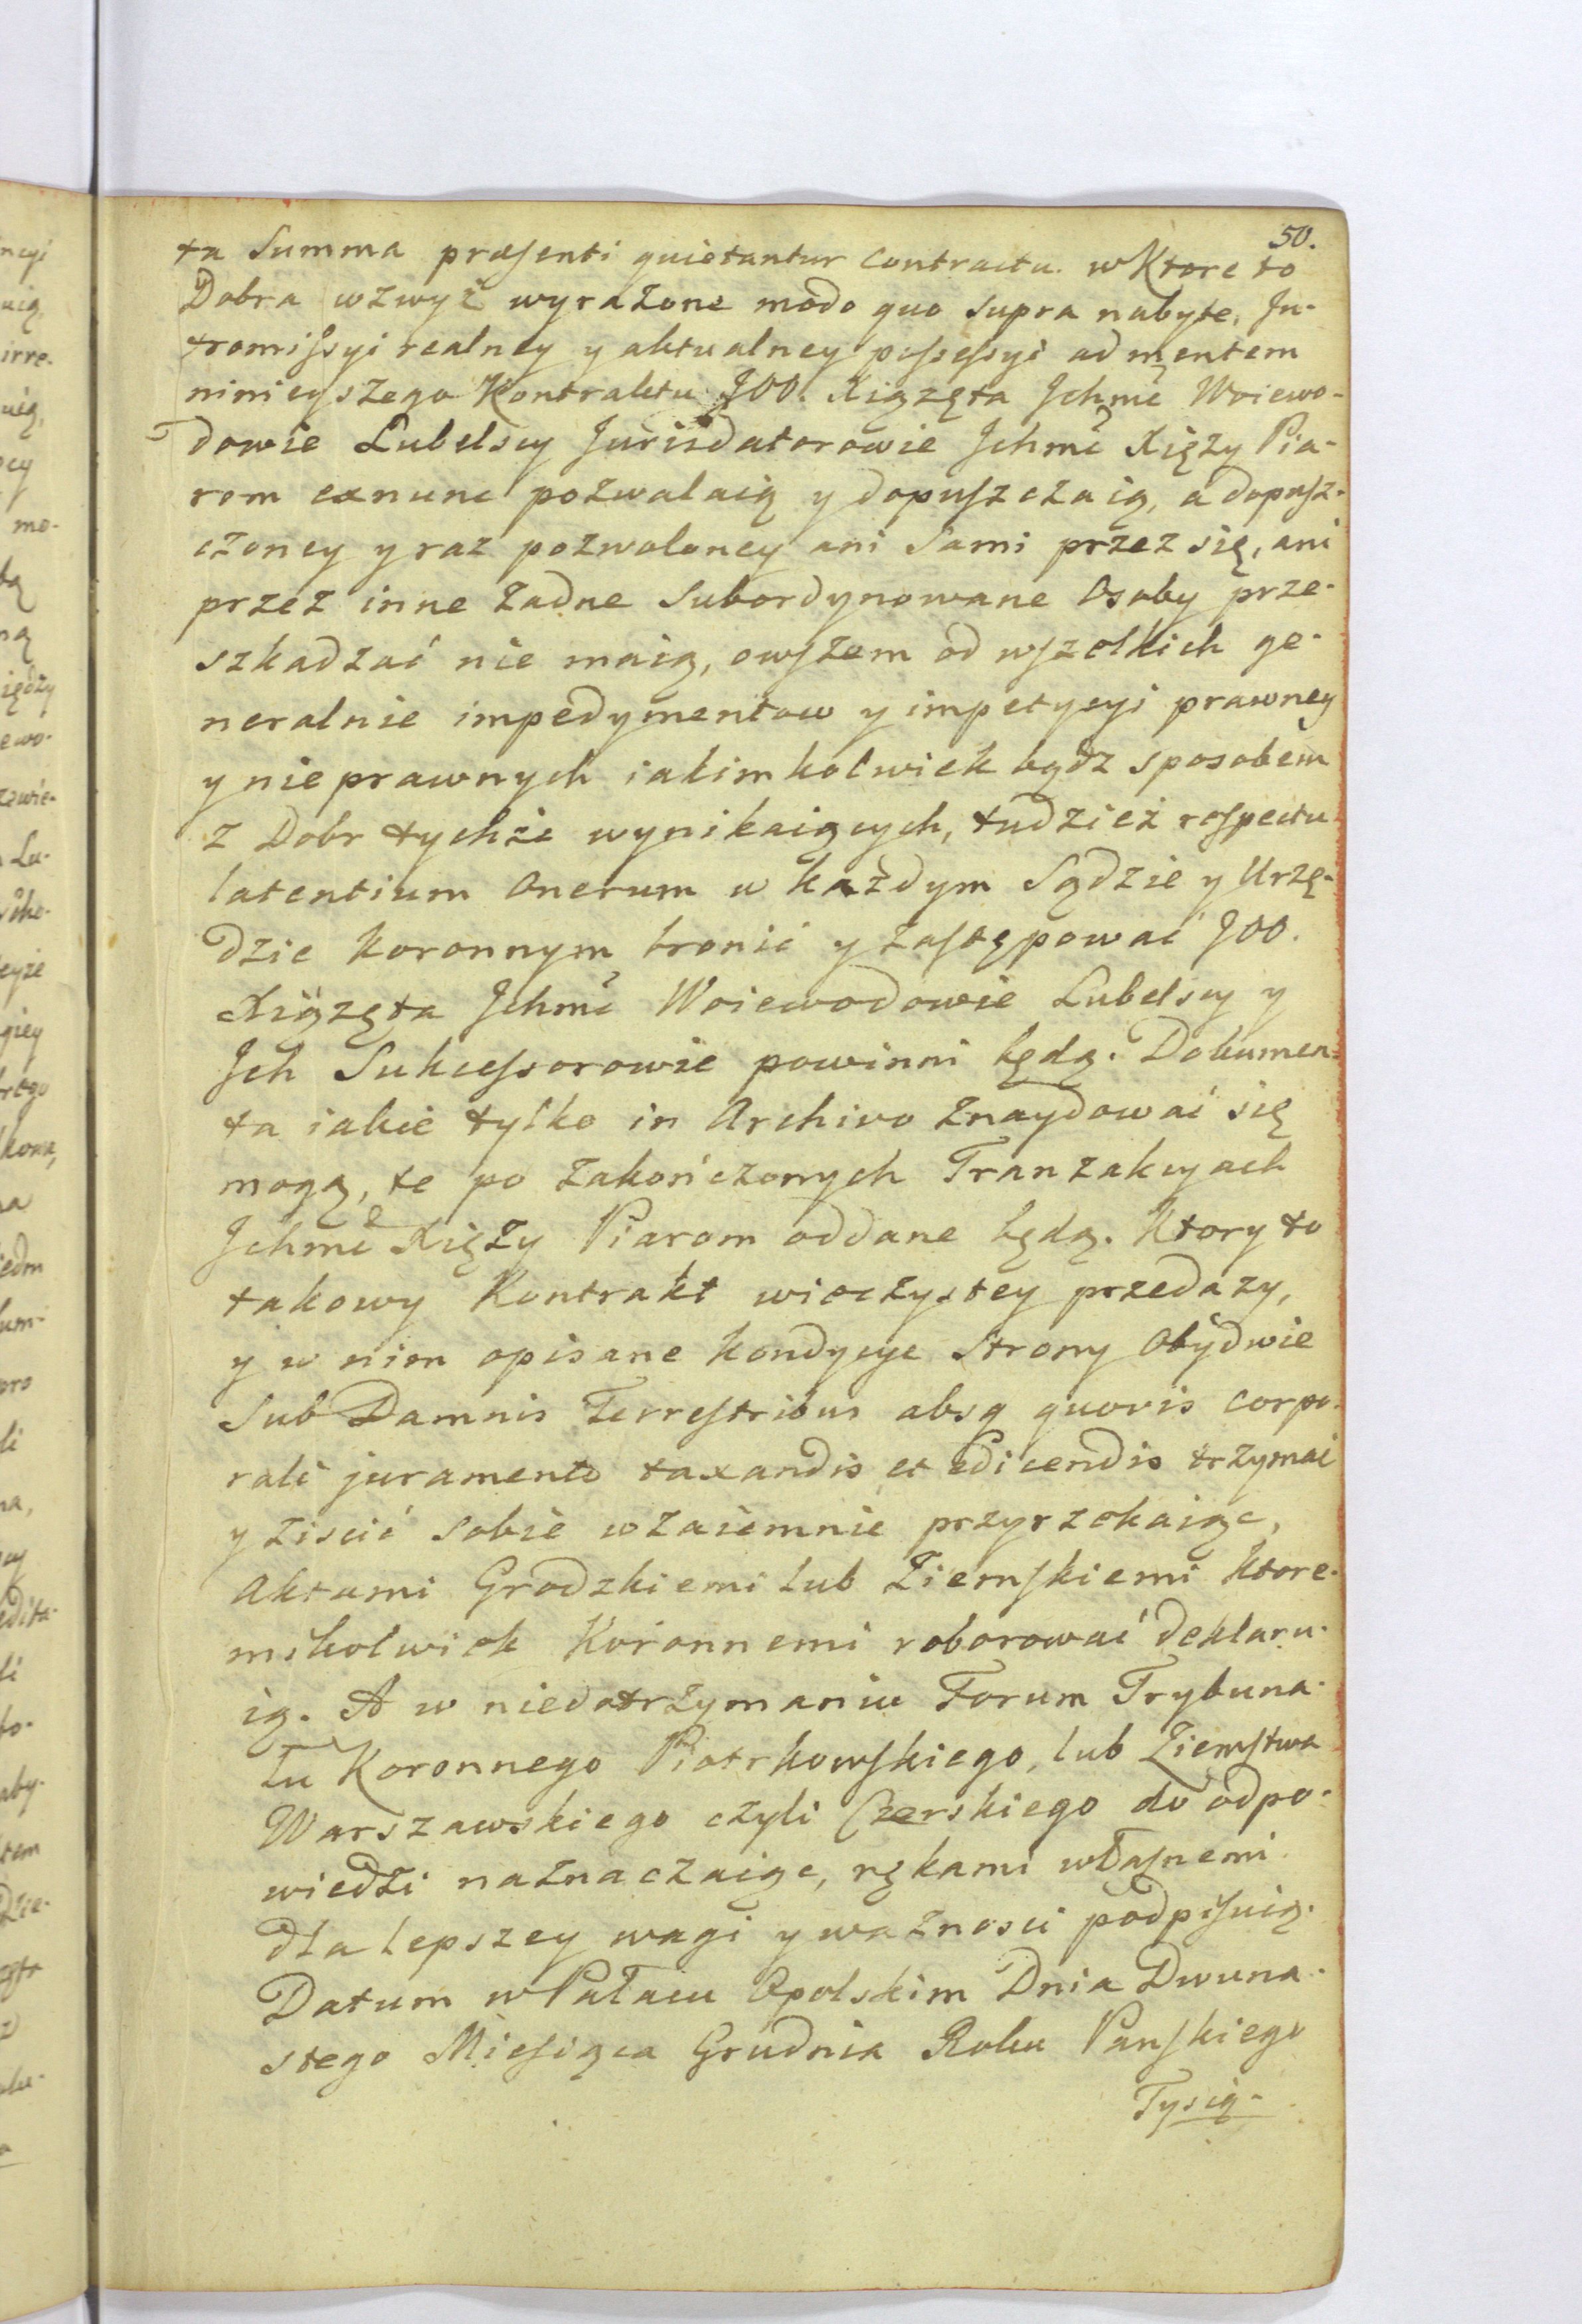 50.
ta Summa præsenti quietantur Contractu. w Ktore to
Dobra wzwyż wyrażone modo quo supra nabyte, In-
tromissyi realney y aktualney possessyi ad mentem
ninieyszego Kontraktu JOO. Xiążęta Ichmć Woiewo-
dowie Lubelscy Jurisdatorowie Ichmć Xięży Pia-
rom exnunc pozwalaią y dopuszczaią, a dopusz-
czoney y raz pozwoloney ani Sami przez się, ani
przez inne żadne Subordynowane Osoby prze-
szkadzać nie maią, owszem od wszelkich ge-
neralnie impedymentow y impetycyi prawney
y nieprawnych iakimkolwiek bądz sposobem
z Dobr tychże wynikaiących, tudzież respectu
latentium Onerum w każdym Sądzie y Urzę-
dzie Koronnym bronić y zastępować JOO.
Xiążęta Ichmć Woiewodowie Lubelscy y
Ich Sukcessorowie powinni będą. Dokumen-
ta iakie tylko in Archivo znaydować się
mogą, te po zakończonych Tranzakcyach
Ichmć Xięży Piarom oddane będą. Ktory to
takowy Kontrakt wieczystey przedazy,
y w nim opisane Kondycye Strony Obydwie
Sub Damnis Terrestribus absq quovis corpo-
rali juramento taxandis et edicendis trzymać
y ziscić sobie wzaiemnie przyrzekaiąc,
Aktami Grodzkiemi lub Ziemskiemi Ktore-
mikolwiek Koronnemi roborować deklaru-
ią. A w niedotrzymaniu Forum Trybuna-
łu Koronnego Piotrkowskiego, lub Ziemstwa
Warszawskiego czyli Czerskiego do odpo-
wiedzi naznaczaiąc, rękami własnemi
dla lepszey wagi y ważnosci podpisuią.
Datum w Pałacu Opolskim Dnia Dwuna-
stego Miesiąca Grudnia Roku Panskiego
Tysią-